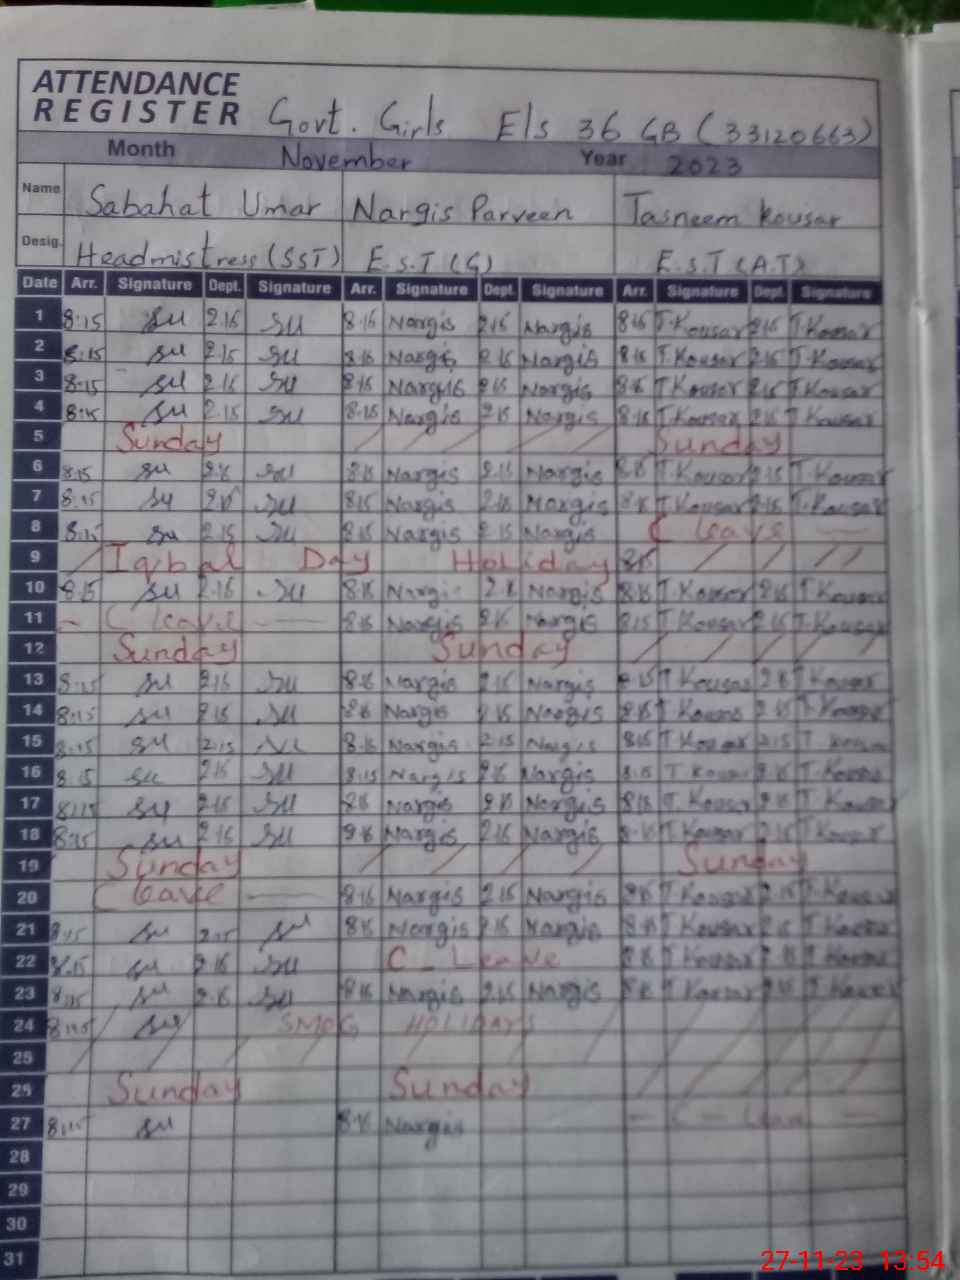 ATTENDANCE
REGISTER Govt. Girls E/s 36 GB (33120663)
Month November Year 2023
Name Sabahat Umar Nargis Parveen Tasneem Kousar
Desig. Headmistress (SST) E.S.T (G) E.S.T (A.T)
Date Arr. Signature Dept. Signature Arr. Signature Dept. Signature Arr. Signature Dept. Signature
1 8:15 su 2:15 su 8:15 Nargis 2:15 Nargis 8:15 T.Kousar 2:15 T.Kousar
2 8:15 su 2:15 su 8:15 Nargis 2:15 Nargis 8:15 T.Kousar 2:15 T.Kousar
3 8:15 su 2:15 su 8:15 Nargis 2:15 Nargis 8:15 T.Kousar 2:15 T.Kousar
4 8:15 su 2:15 su 8:15 Nargis 2:15 Nargis 8:15 T.Kousar 2:15 T.Kousar
5 Sunday Sunday
6 8:15 su 2:15 su 8:15 Nargis 2:15 Nargis 8:15 T.Kousar 2:15 T.Kousar
7 8:15 su su 8:15 Nargis 2:15 Nargis 8:15 T.Kousar 2:15 T.Kousar
8 8:15 su 2:15 su 8:15 Nargis 2:15 Nargis C leave
9 Iqbal Day Holiday 8:15
10 8:15 su 2:15 su 8:15 Nargis 2:15 Nargis 8:15 T.Kousar 2:15 T.Kousar
11 C leave 8:15 Nargis 2:15 Nargis 8:15 T.Kousar 2:15 T.Kousar
12 Sunday Sunday
13 8:15 su 2:15 su 8:15 Nargis 2:15 Nargis 8:15 T Kousar 2:15 T Kousar
14 8:15 su 2:15 su 8:15 Nargis 2:15 Nargis 8:15 T Kousar 2:15 T Kousar
15 8:15 su 2:15 su 8:15 Nargis 2:15 Nargis 8:15 T Kousar 2:15 T Kousar
16 8:15 su 2:15 su 8:15 Nargis 2:15 Nargis 8:15 T Kousar 2:15 T.Kousar
17 8:15 su 2:15 su 8:15 Nargis 2:15 Nargis 8:15 T.Kousar 2:15 T.Kousar
18 8:15 su 2:15 su Nargis 2:15 Nargis 8:15 T Kousar 2:15 T.Kousar
19 Sunday Sunday
20 C leave 8:15 Nargis 2:15 Nargis 8:15 T Kousar 2:15 T.Kousar
21 8:15 su 2:15 su 8:15 Nargis 2:15 Nargis 8:15 T Kousar 2:15 T.Kousar
22 8:15 su 2:15 su C - Leave 8:15 T Kousar 2:15 T Kousar
23 8:15 su 2:15 su 8:15 Nargis 2:15 Nargis 8:15 T Kousar 2:15 T Kousar
24 8:15 su SMOG HOLIDAYS
25
25 Sunday Sunday
27 8:15 su 8:15 Nargis - C - Leave -
28
29
30
31
27-11-23 13:54